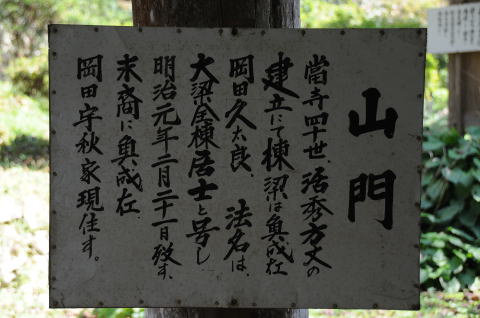 山門
當寺四十世、活秀方丈の
建立にて棟梁は奥成在
岡田久太良、法名は、
大梁全棟居士と号し
明治元年二月二十一日歿す、
末裔に奥成在、
岡田宇秋家現住す。